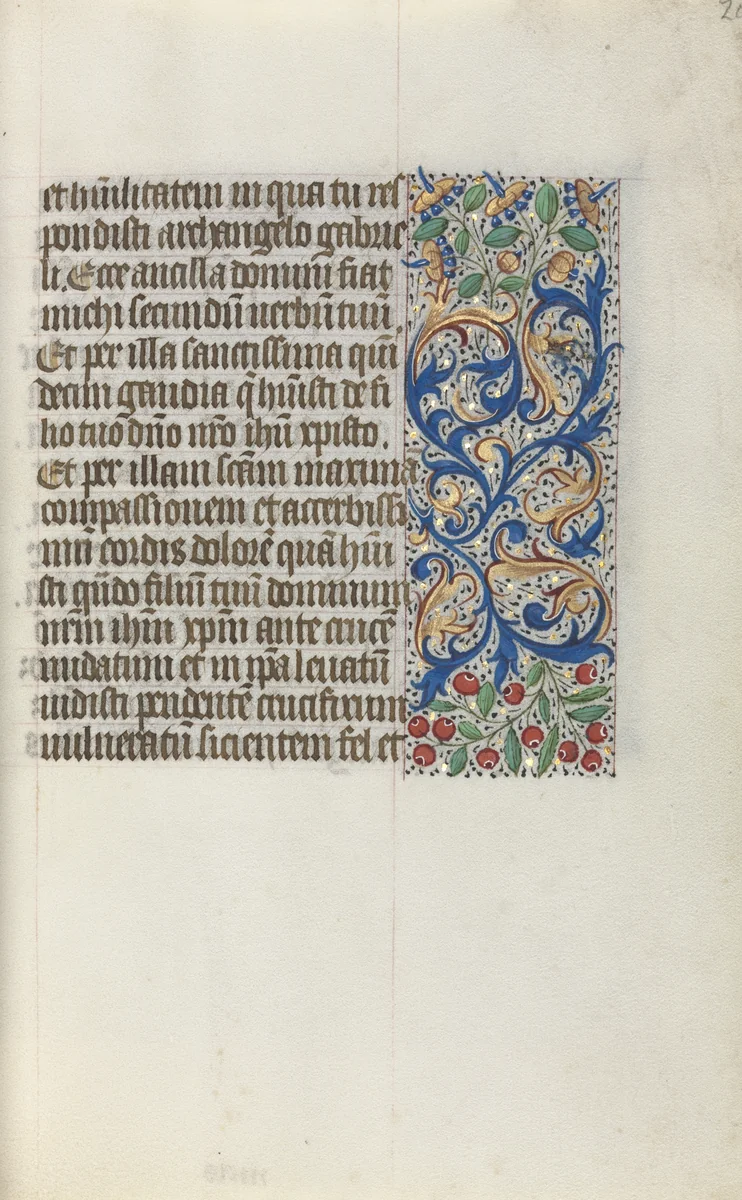 et hūilitatem in qua tu res
pondisti archangelo gabrie
li. Ecce ancilla domini fiat
michi secundū uerbū tuū.
Et per illa sanctissima quī
decim gaudia q̄ hūisti de fi
lio tuo dño nr̄o ihū xpisto.
Et per illam scām maximā
compassionem et acerbissi
mū cordis dolorē quā hūi
sti qn̄do filiū tuū dominum
nr̄m ihm̄ xpm̄ ante crucē
nudatum et in ip̄a leuatū
uidisti pendentē crucifixum
uulneratū sicientem fel et